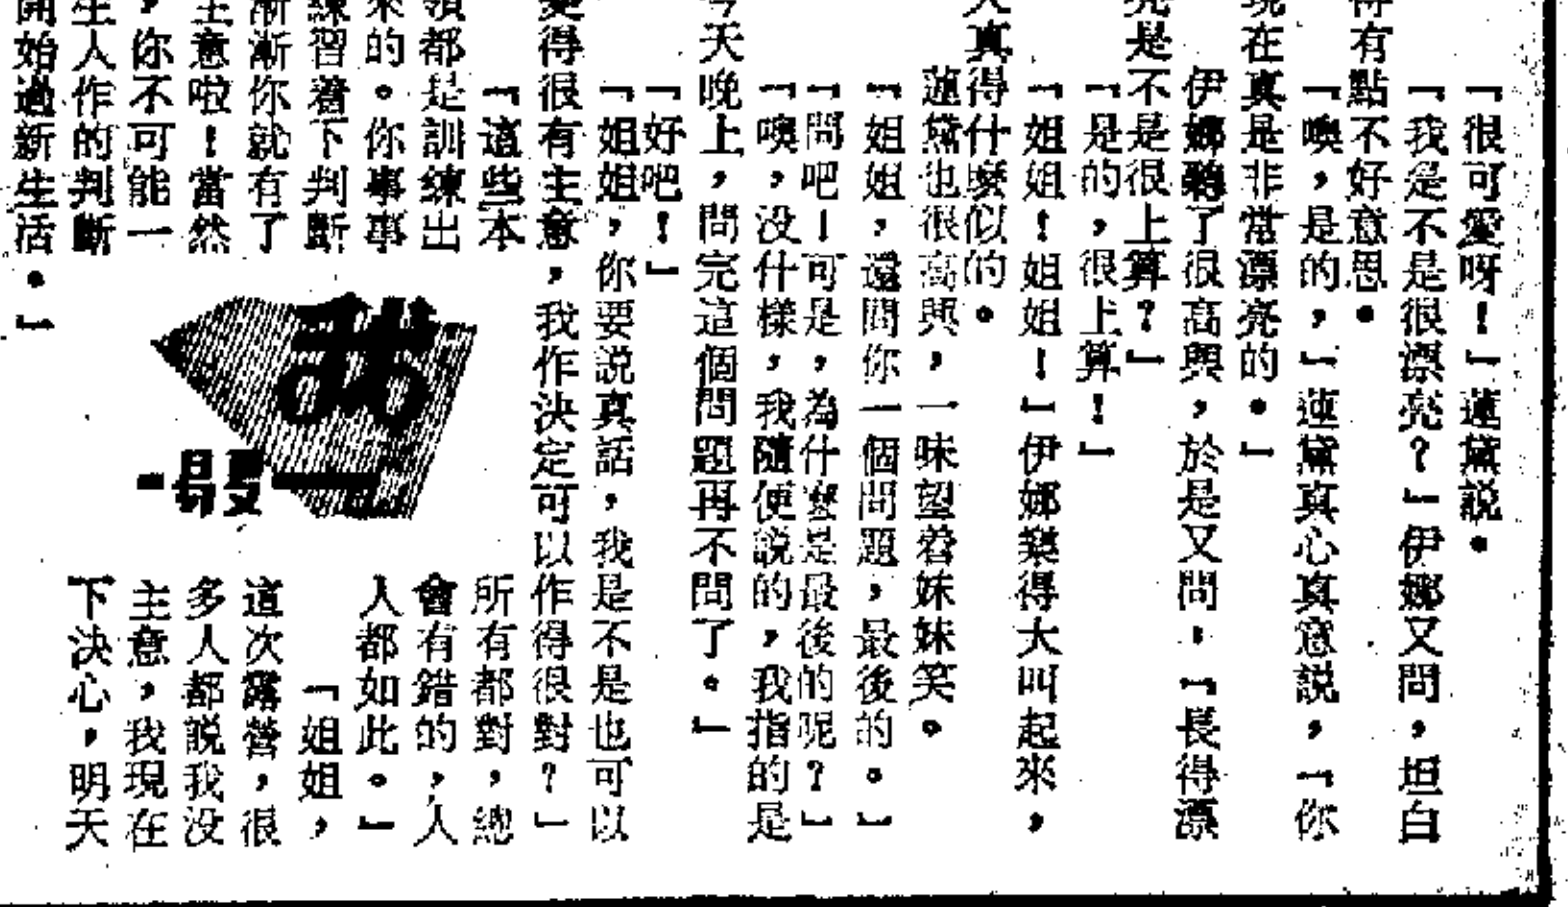 「很可愛呀！」蓮黛説。
「我是不是很漂亮？」伊娜又問，坦白
得有點不好意思。
「噢，是的，」蓮黛真心真意説，「你
現在真是非常漂亮的。」
伊娜聽了很高興，於是又問，「長得漂
亮是不是很上算？」
「是的，很上算！」
「姐姐！姐姐！」伊娜樂得大叫起來，
天真得什麼似的。
蓮黛也很高興，一味望着妹妹笑。
「姐姐，還問你一個問題，最後的。」
「問吧！可是，為什麼是最後的呢？」
「噢，没什樣，我隨便説的，我指的是
今天晚上，問完這個問題再不問了。」
「好吧！」
「姐姐，你要説真話，我是不是也可以
變得很有主意，我作決定可以作得很對？」
「這些本
領都是訓練出
來的。你事事
練習着下判斷
漸漸你就有了
主意啦！當然
，你不可能一
生人作的判斷
所有都對，總
會有錯的，人
人都如此。」
「姐姐，
這次露營，很
多人都説我没
主意，我現在
下決心，明天
開始過新生活。」